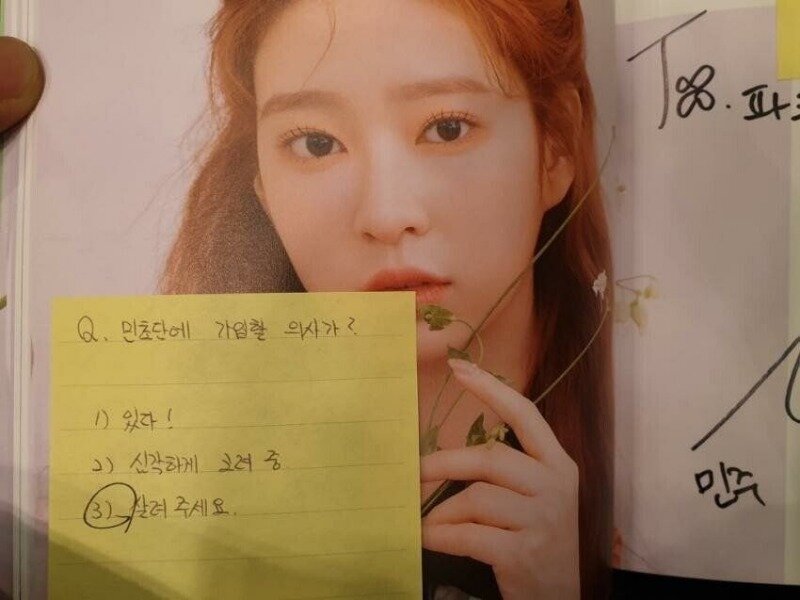 Q. 민초단에 가입할 의사가?
1) 있다!
2) 신각하게 고려 중
3) 살려주세요.
To. 파
민주